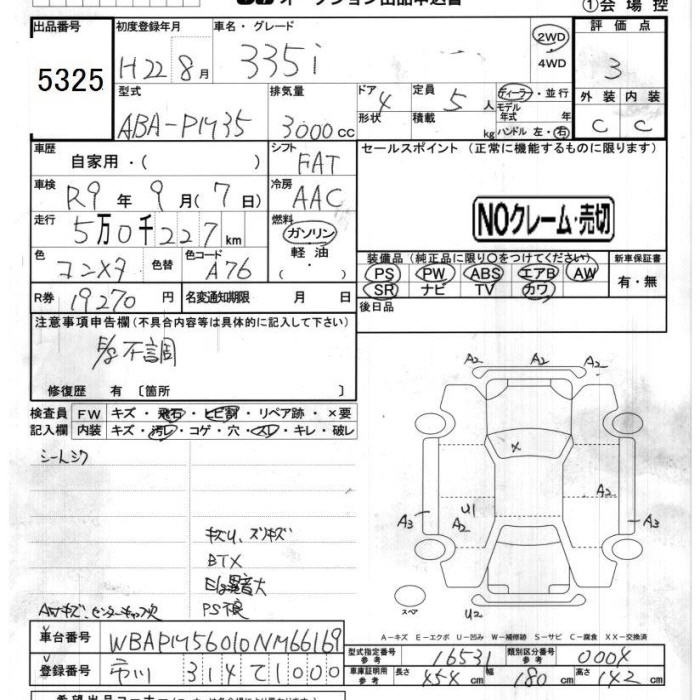 オークション出品申込書
①会場控
出品番号 初度登録年月 車名・グレード 評価点
5325 H22年8月 335i 2WD 4WD 3
型式 排気量 ドア 4 定員 5人 ディーラー・並行 外装 内装
ABA-PM35 3000cc 形状 積載 kg モデル年式 年 C C
ハンドル 左・右
車歴 自家用・( ) シフト FAT セールスポイント(正常に機能するものに限ります)
車検 R9年9月(7日) 冷房 AAC
NOクレーム・売切
走行 5万0千227km 燃料 ガソリン
軽油
・( )
装備品(純正品に限り○をつけてください) 新車保証書
色 コンメタ 色替 色コード A76 PS PW ABS エアB AW 有・無
SR ナビ TV カワ
R券 19270円 名変通知期限 月 日 後日品
注意事項申告欄(不具合内容等は具体的に記入して下さい)
E/g不調
修復歴 有 〔箇所 〕
検査員 FW キズ・飛石・ヒビ割・リペア跡・×要
記入欄 内装 キズ・汚レ・コゲ・穴・スレ・キレ・破レ
キズU、スリキズ
BTX
E/g異音大
AWキズ、センターキャップ欠 PS不良
A2 A2 A2
X
A2
U1
A3 A2 A3
スペア
U2
A-キズ E-エクボ U-凹み W-補修跡 S-サビ C-腐食 XX-交換済
車台番号 WBAPM56010NM66169
登録番号 市川 314 て1000
型式指定番号 参考 16531 類別区分番号 参考 0004
車庫証明用 参考 長さ 454cm 幅 180cm 高さ 142cm